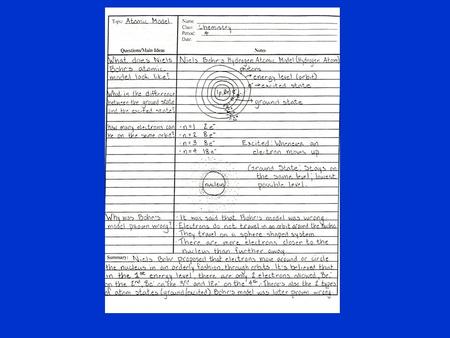 Topic: Atomic Model
Name:
Class: Chemistry
Period: 4
Date:
Questions/Main Ideas
Notes
What does Niels
Bohr's atomic
model look like?
Niels Bohr's Hydrogen Atomic Model (Hydrogen Atom)
energy level (orbit)
excited state
ground state
What in the difference
between the ground state
and the excited state?
how many electrons can
be on the same orbit?
n=1 2e-
n=2 8e-
n=3 8e-
n=4 18e-
Excited: Whenever an
electron moves up
Ground State: Stays on
the same level, lowest
possible level.
nucleus
Why was Bohr's
model proven wrong?
It was said that Bohr's model was wrong.
Electrons do not travel in an orbit around the nucleus.
They travel on a sphere shaped system.
There are more electrons closer to the
nucleus than further away.
Summary: Niels Bohr proposed that electrons move around or circle
the nucleus in an orderly fashion through orbits. It's believed that
in the 1st energy level, there are only 2 electrons allowed, 8e-
on the 2nd, 8e- on the 3rd and 18e- on the 4th. There's also the 2 types
of atom states (ground/excited). Bohr's model was later proven wrong.